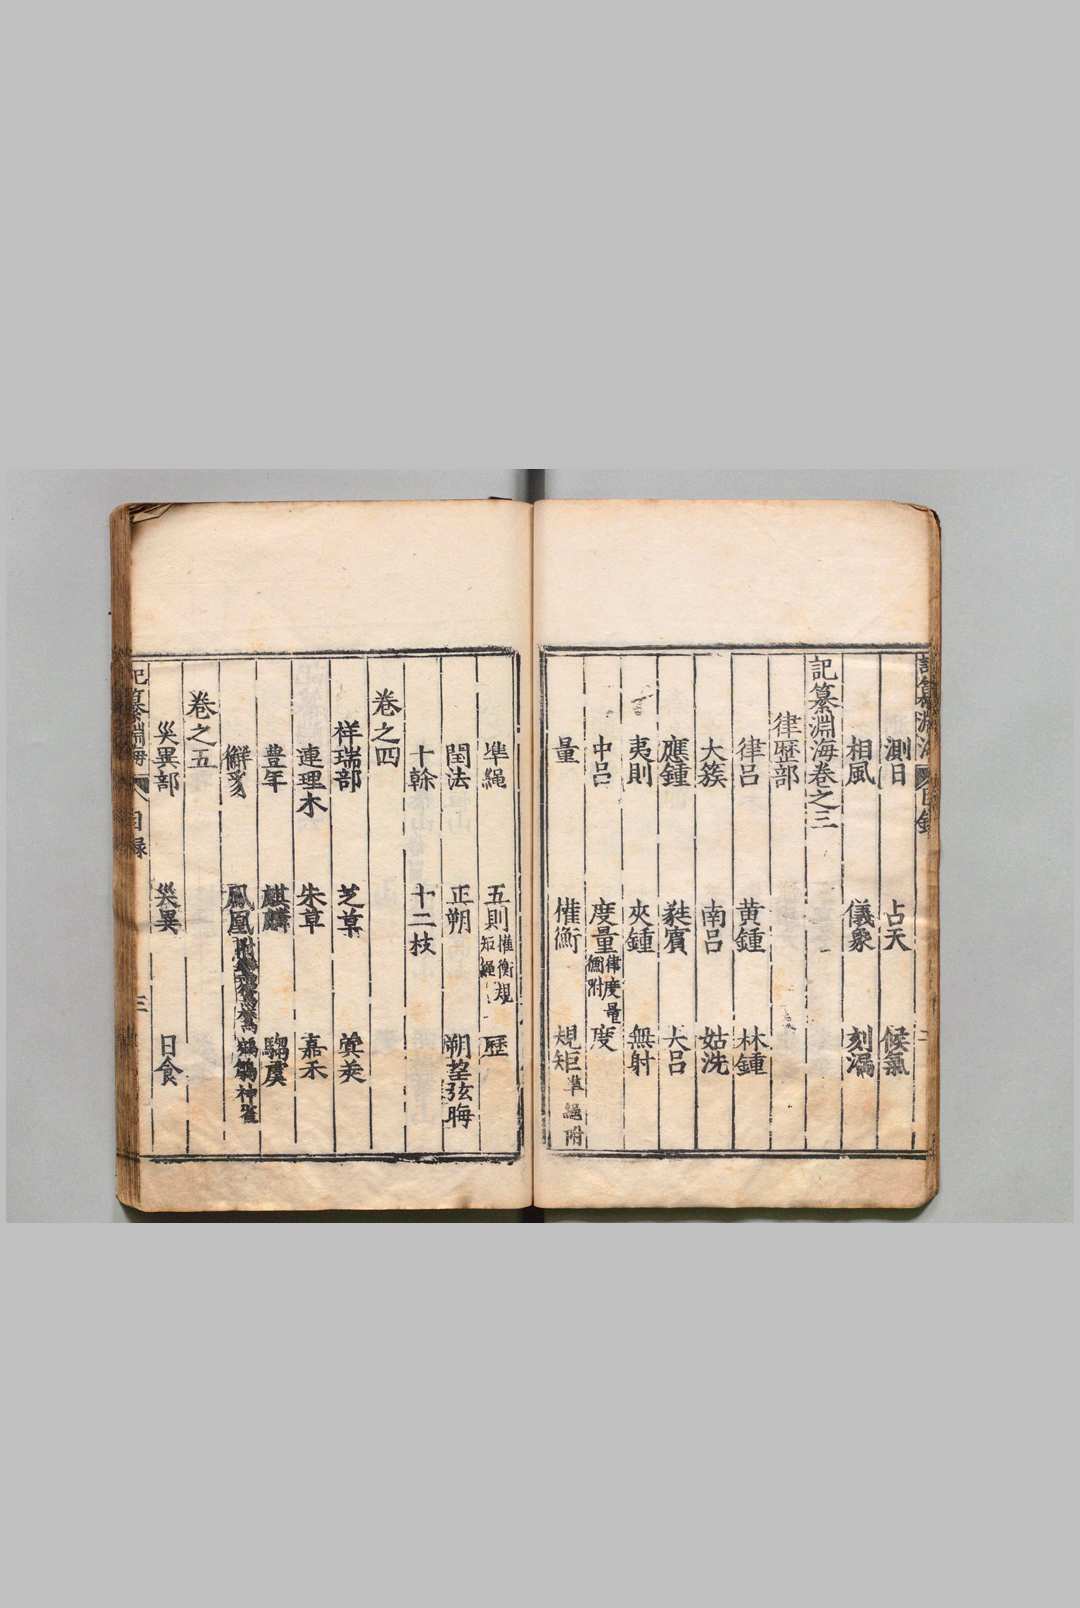 記纂淵海 目錄
測日 占天 候氣
相風 儀象 刻漏
記纂淵海卷之三
律歷部
律呂 黃鍾 林鍾
大簇 南呂 姑洗
應鍾 蕤賔 大呂
夷則 夾鍾 無射
中呂 度量律度量衡附 度
量 權衡 規矩準繩附
準繩 五則權衡規矩繩 歷
閏法 正朔 朔望弦晦
十幹 十二枝
卷之四
祥瑞部 芝草 蓂莢
連理木 朱草 嘉禾
豊年 麒麟 騶虞
獬豸 鳳凰 神雀
卷之五
災異部 災異 日食
記纂淵海 目録 三